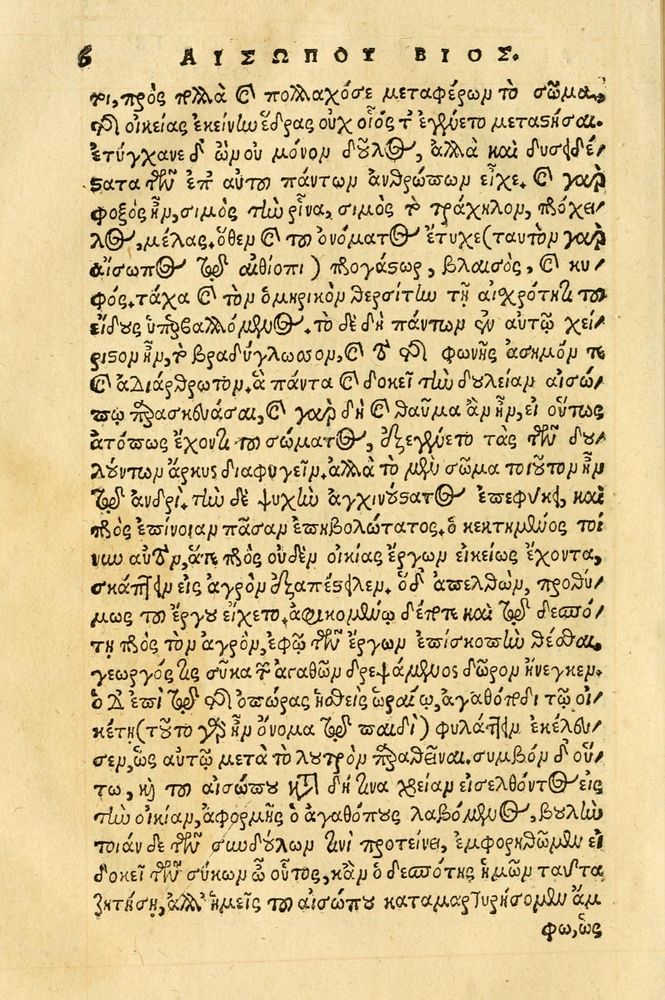 6 ΑΙΣΩΠΟΥ ΒΙΟΣ.
ρι, πρὸς πολλὰ καὶ πολλαχόσε μεταφέρων τὸ σῶμα,
τῆς οἰκείας ἐκείνην ἕδρας οὐχ οἷός τ' ἐγένετο μεταστῆσαι.
ἐτύγχανε δ' ὢν οὐ μόνον δοῦλος, ἀλλὰ καὶ δυσειδέ-
στατα τῶν ἐπ' αὐτοῦ πάντων ἀνθρώπων εἶχε. καὶ γὰρ
φοξὸς ἦν, σιμὸς τὴν ῥῖνα, σιμὸς τὸν τράχηλον, πρόχει-
λος, μέλας. ὅθεν καὶ τοῦ ὀνόματος ἔτυχε (ταυτὸν γὰρ
αἴσωπος τῷ αἰθίοπι) προγάστωρ, βλαισὸς, καὶ κυ-
φός. τάχα καὶ τὸν ὁμηρικὸν θερσίτην τῇ αἰσχρότητι τοῦ
εἴδους ὑπερβαλλόμενος. τὸ δὲ δὴ πάντων ἐν αὐτῷ χεί-
ριστον ἦν, τὸ βραδύγλωσσον, καὶ τὸ τῆς φωνῆς ἄσημόν τε
καὶ ἀδιάρθρωτον. ἃ πάντα καὶ δοκεῖ τὴν δουλείαν αἰσώ-
πῳ παρασκευάσαι, καὶ γὰρ δὴ καὶ θαῦμα ἂν ἦν, εἰ οὕτως
ἀτόπως ἔχοντι τοῦ σώματος, ἐξεγένετο τὰς τῶν δου-
λούντων ἄρκυς διαφυγεῖν. ἀλλὰ τὸ μὲν σῶμα τοιοῦτον ἦν
τῷ ἀνδρί. τὴν δὲ ψυχὴν ἀγχινούστατος ἐπεφύκει, καὶ
πρὸς ἐπίνοιαν πᾶσαν ἐπηβολώτατος. ὁ κεκτημένος τοί-
νυν αὐτὸν, ἅτε πρὸς οὐδὲν οἰκίας ἔργον εἰκείως ἔχοντα,
σκάπτειν εἰς ἀγρὸν ἐξαπέστειλεν. ὁ δ' ἀπελθὼν, προθύ-
μως τοῦ ἔργου εἴχετο. ἀφικομένῳ δέ ποτε καὶ τῷ δεσπό-
τῃ πρὸς τὸν ἀγρὸν, ἐφ' ᾧ τῶν ἔργων ἐπίσκοπὴν θέσθαι,
γεωργός τις σῦκα τῶν ἀγαθῶν δρεψάμενος δῶρον ἤνεγκεν.
ὁ δ' ἐπὶ τῷ τῆς ὀπώρας ἡσθεὶς ὡραίῳ, ἀγαθόποδι τῷ οἰ-
κέτῃ (τοῦτο γὰρ ἦν ὄνομα τῷ παιδὶ) φυλάττειν ἐκέλευ-
σεν, ὡς αὐτῷ μετὰ τὸ λουτρὸν παραθεῖναι. συμβὰν δ' οὕ-
τω, καὶ τοῦ αἰσώπου κατὰ δή τινα χρείαν εἰσελθόντος εἰς
τὴν οἰκίαν, ἀφορμῆς ὁ ἀγαθόπους λαβόμενος, βουλὴν
τοιάνδε τῶν συνδούλων τινὶ προτείνει, ἐμφορηθῶμεν εἰ
δοκεῖ τῶν σύκων ὦ οὗτος, κἂν ὁ δεσπότης ἡμῶν ταῦτα
ζητήσῃ, ἀλλ' ἡμεῖς τοῦ αἰσώπου καταμαρτυρήσομεν ἄμ
φω, ὡς